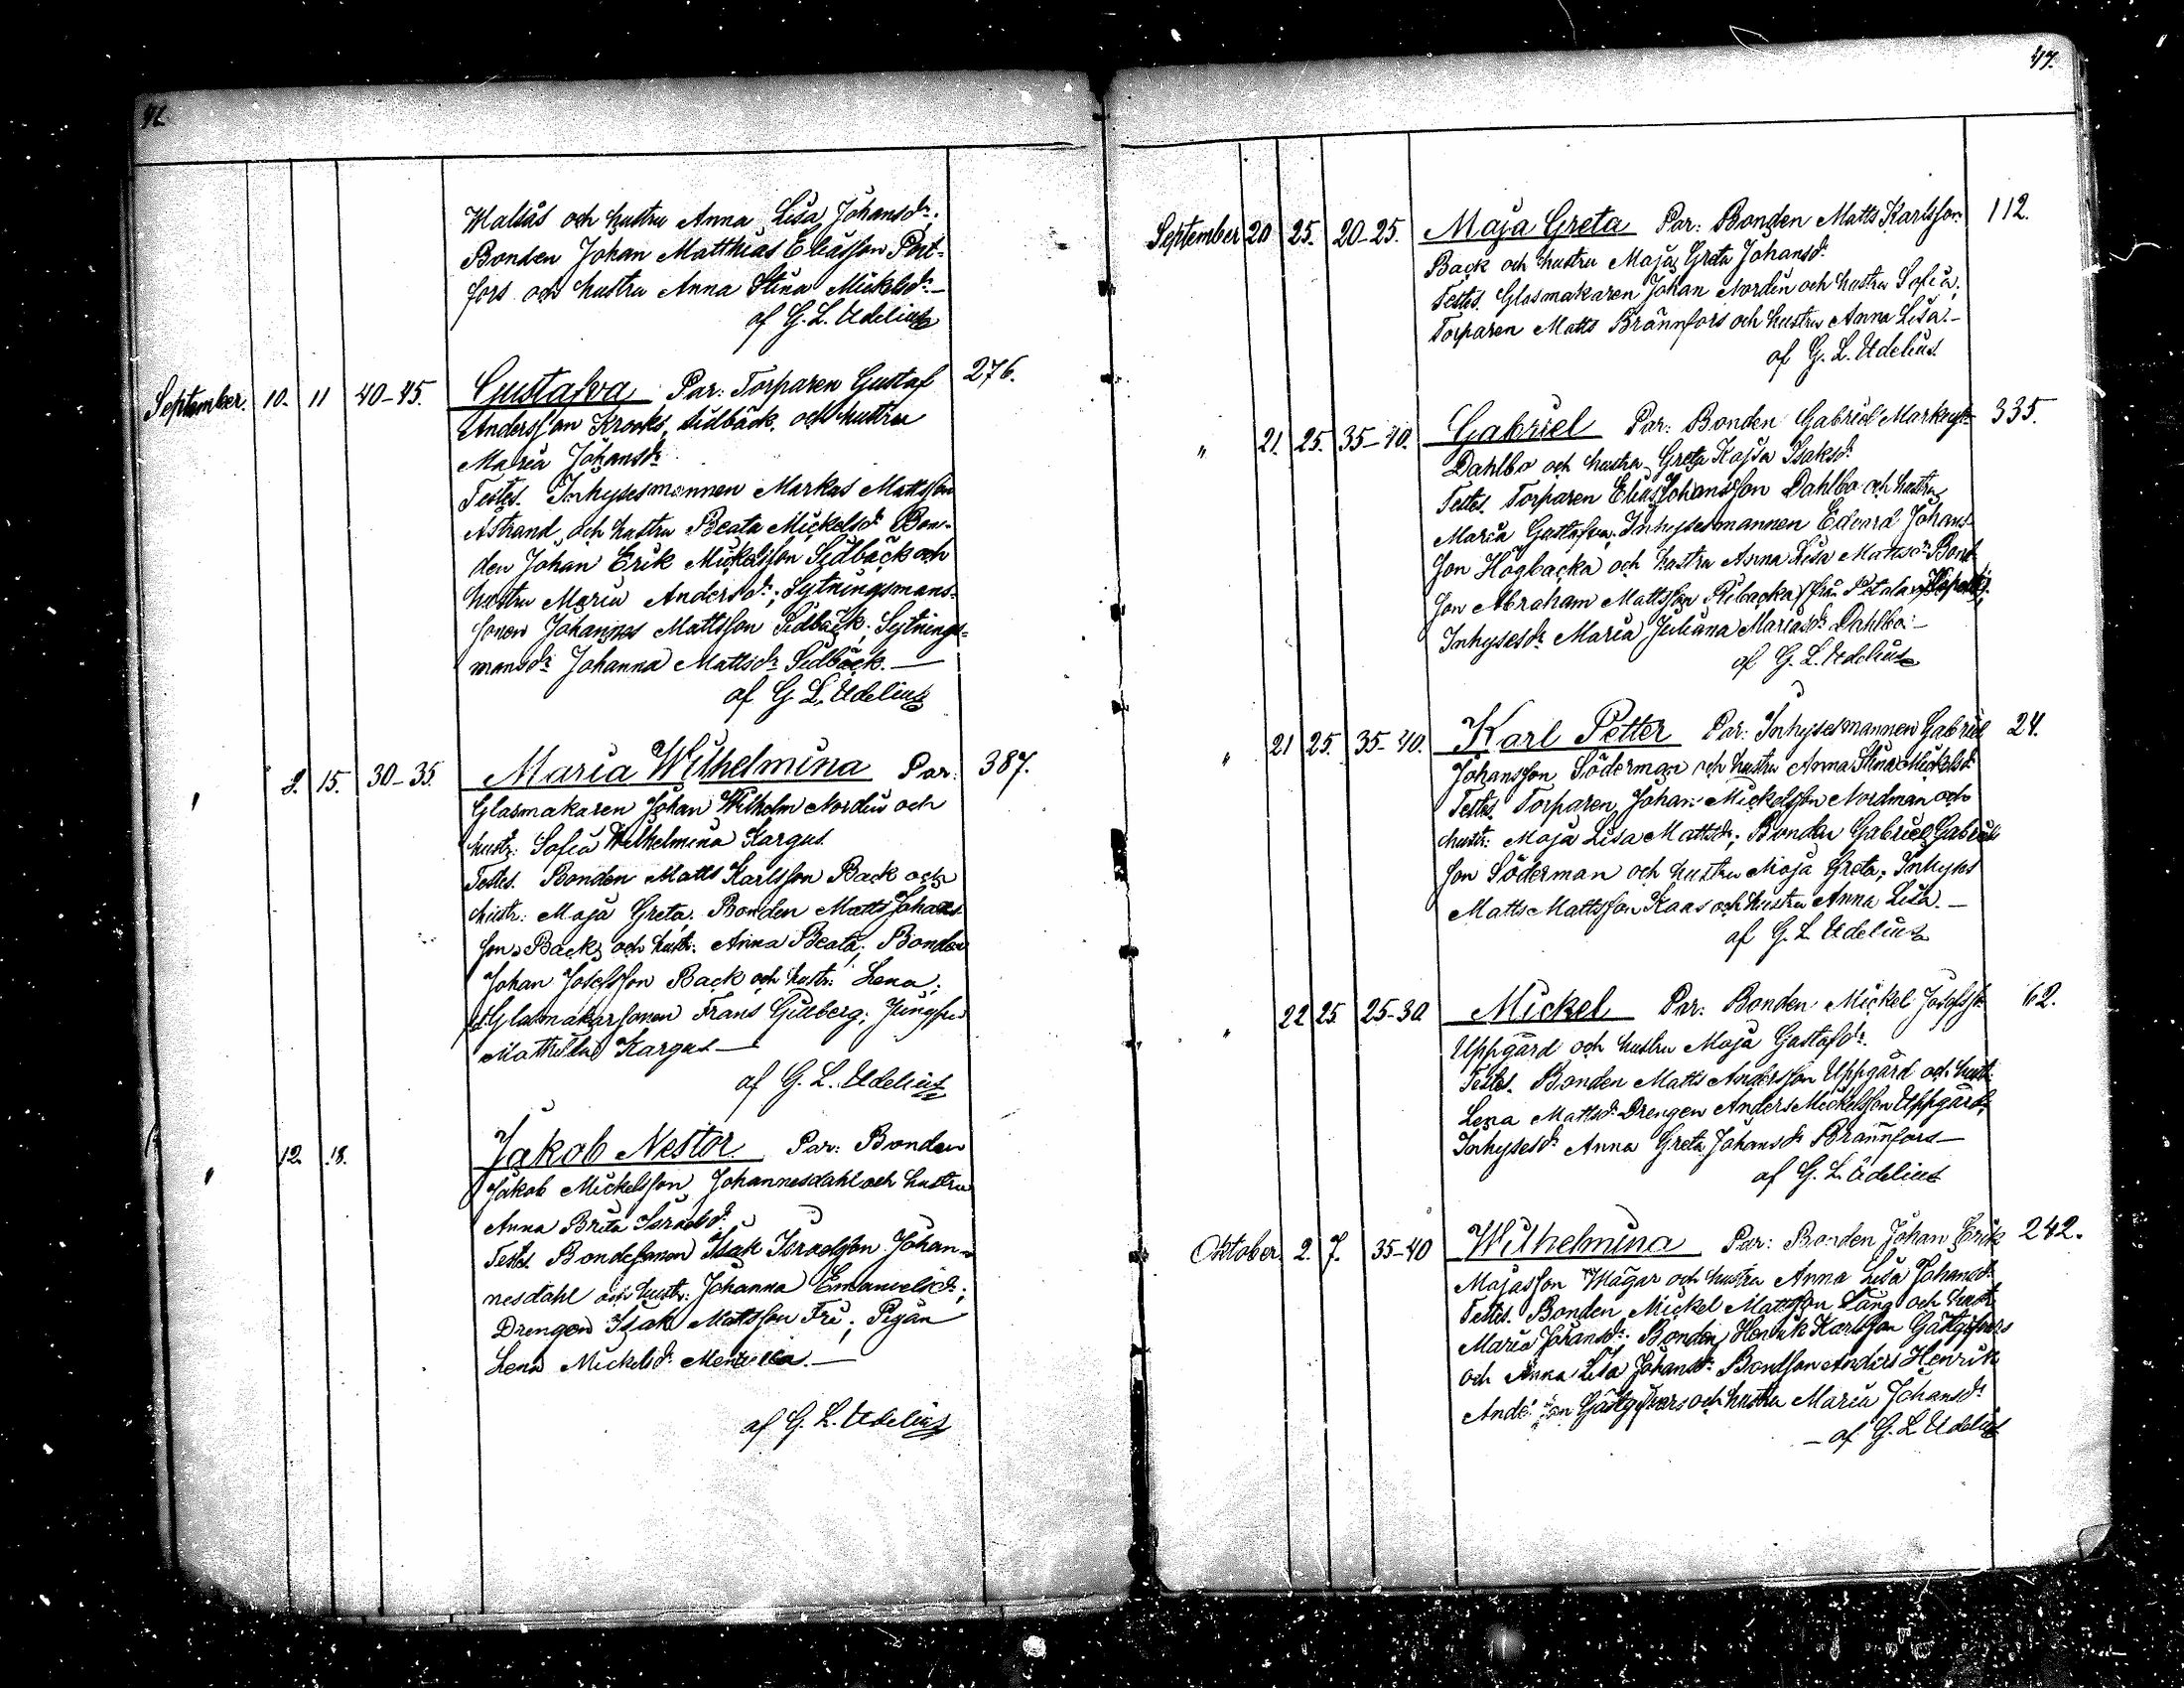 46.
Malsås och hustru Anna Lisa Johansdr;
Bonden Johan Matthias Eliasson Port-
fors och hustru Anna Stina Mickelsdr.-
af G. L. Udelius
September. 10. 11 40-45. Gustafva Par: Torparen Gustaf 276.
Andersson Krooks, Sidbäck och hustru
Maria Johansdr
Testes. Inhysesmannen Markas Mattsson
Åstrand och hustru Beata Mickelsdr Bon-
den Johan Erik Mickelsson Sidbäck och
hustru Maria Andersdr; Sytningsmans-
sonen Johannes Mattsson Sidbäck; Sytnings-
mansdr Johanna Mattsdr Sidbäck.-
af G. L. Udelius
" 8. 15. 30-35. Maria Wilhelmina Par: 387.
Glasmakaren Johan Wilhelm Nordin och
hustr: Sofia Wilhelmina Kargus.
Testes. Bonden Matts Karlsson Back och
hustr: Maja Greta. Bonden Matts Johans-
son Back och hustr: Anna Beata; Bonden
Johan Josefsson Back och hustr: Lena;
Glasmakarsonen Frans Gilberg; Jungfru
Mathilda Kargus-
af G. L. Udelius
" 12. 18. Jakob Nestor Par: Bonden
Jakob Mickelsson Johannesdahl och hustru
Anna Brita Israelsdr
Testes. Bondesonen Isak Israelsson Johan-
nesdahl och hustr: Johanna Emanuelsdr;
Drengen Isak Mattsson Fri; Pigan
Lena Mickelsdr
af G. L. Udelius
47.
September 20 25. 20-25. Maja Greta Par: Bonden Matts Karlsson 112.
Back och hustru Maja Greta Johansdr
Testes. Glasmakaren Johan Nordin och hustru Sofia;
Torparen Matts Brännfors och hustru Anna Lisa.-
af G. L. Udelius
" 21. 25. 35-40. Gabriel Par: Bonden Gabriel 335.
Dahlbo och hustru Greta Kajsa Isaksdr
Testes. Torparen Elias Johansson Dahlbo och hustru
Maria Gustafva; Inhysesmannen Edvard Johans-
son Högbacka och hustru Anna Lisa Mattsdr Bond-
son Abraham Mattsson Ribacka från
Inhysesdr Maria Juliana Mariasdr Dahlbo-
af G. L. Udelius
" 21 25. 35-40. Karl Petter Par: Inhysesmannen Gabriel 24.
Johansson Söderman och hustru Anna Stina Mickelsdr
Testes. Torparen Johan Mickelsson Nordman och
hustr: Maja Lisa Mattsdr; Bonden Gabriel Gabriels
son Söderman och hustru Maja Greta; Inhyses
Matts Mattsson Kaas och hustru Anna Lisa.-
af G. L. Udelius
" 22 25 25-30. Mickel Par: Bonden Mickel Josefsson 62.
Uppgård och hustru Maja Gustafsdr.
Testes. Bonden Matts Andersson Uppgård och hustr:
Lena Mattsdr Drengen Anders Mickelsson Uppgård;
Inhysesdr Anna Greta Johansdr Brännfors-
af G. L. Udelius
Oktober. 2. 7. 35-40 Wilhelmina Par: Bonden Johan Erik 242.
Majasson Wägar och hustru Anna Lisa Johansdr
Testes. Bonden Mickel Mattsson Lång och hustr
Maria Johansdr; Bonden Henrik Karlsson Gästgifvars
och Anna Lisa Johansdr Bondson Anders Henrik
Andersson Gästgifvars och hustru Maria Johansdr
- af G. L. Udelius